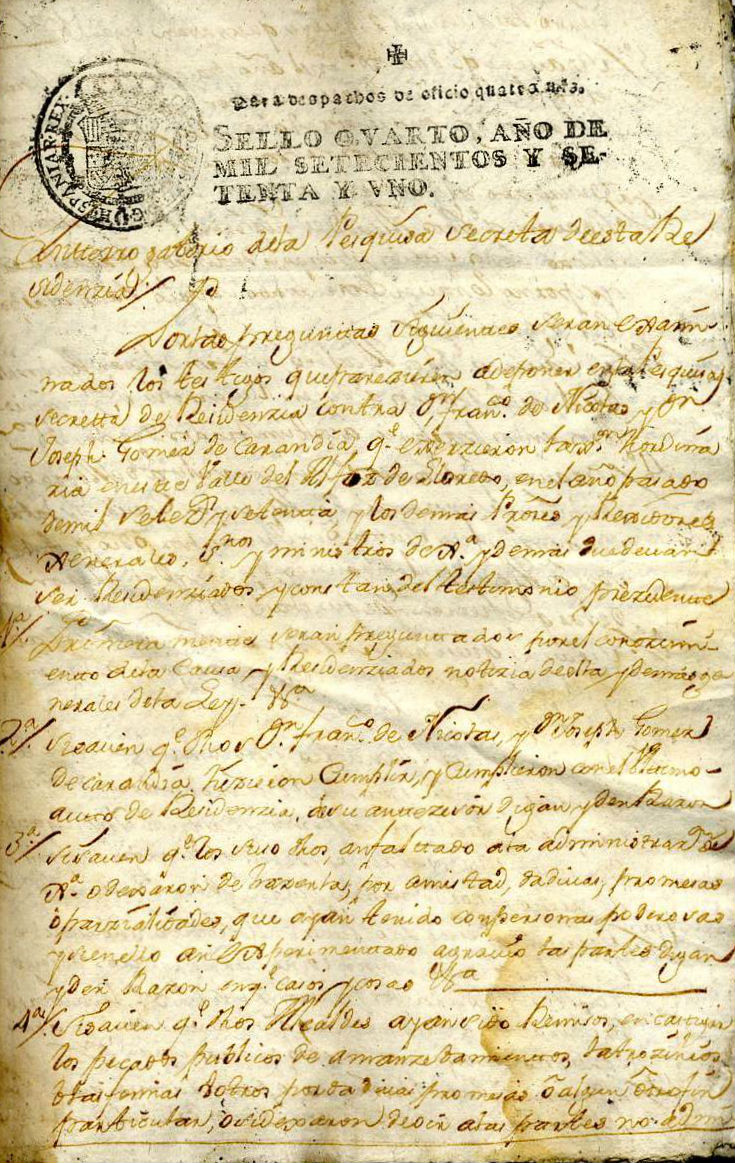 HISPANIAR·REX·
Para despachos de oficio quatro mrs.
SELLO QVARTO, AÑO DE
MIL SETECIENTOS Y SE-
TENTA Y VNO.
Ynterrogatorio dela Pesquisa secreta deesta Re
sidenzia
Porlas preguntas siguientes seran examin
nados los testigos que adeponer enla Pesquisa
secretta de Residenzia contra Dn franco. de Nicolas y Dn
Joseph Gomez de Carandia qe. exerzieron la Hordina
ria eneste Valle del Alfoz de Lloredo, enel año pasado
demil setezs. y setenta, y los demas y Rexidores
Xenerales, ssnos y ministros de Xa. y demas que devan
ser Residenziados y constan del testimonio prezedente
1a./. Primera mente seran preguntados porel conozimi
ento dela Causa, y Residenziados notizia deella y demas ge
nerales dela Ley
2a./. Sisaven qe. dhos Dn. franco. de Nicolas, y Dn Joseph Gomez
de Carandia hizieron Cumplir, y Cumplieron conel Ultimo
auto de Residenzia, desu antezesor digan y den Razon
3a./ Sisaven qe. los suso dhos, anfaltado ala administraon. de
Xa. o dexaron de hazerla, por amistad, dadivas, promesas
o parzialidades, que ayan tenido conpersonas poderosas
y sienello an experimentado agravio las partes digan
y den Razon enqe. casos y cosas
4a./. Sisaven qe. dhos Alcaldes ayan sido Remisos, encastigar
los pecados publicos de amanzebamientos,
otros por dadivas promesas o algun otro fin
particular, o si dexaron deoir alas partes no